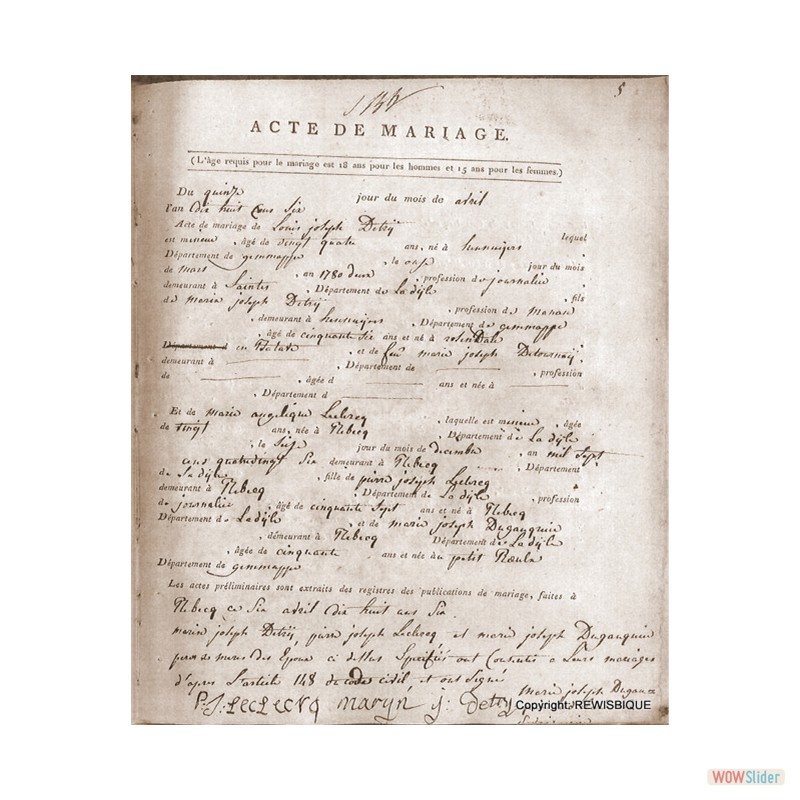 5
ACTE DE MARIAGE.
(L'âge requis pour le mariage est 18 ans pour les hommes et 15 ans pour les femmes.)
Du quinze jour du mois de avril
l'an dix huit cens six
Acte de mariage de Louis joseph Detry lequel
est mineur , âgé de vingt quatre ans, né à hennuijers
Département de gemmappe , le onze jour du mois
de mars , an 1780 deux , profession de journalier
demeurant à Saintes , Département de La dÿle , fils
de marin joseph Detry , profession de
, demeurant à hennuijers , Département de gemmappe
, âgé de cinquante six ans et né à
Département d en , et de feu marie joseph Detournaij
demeurant à Département de , profession
de , âgée d ans et née à
, Département d
Et de marie angelique Leclercq , laquelle est mineure , âgée
de vingt ans, née à Tubecq Département de La dÿle
, le Seize jour du mois de decembre , an mil Sept
cens quatrevingt Six demeurant à Tubecq , Département
de La dÿle , fille de pierre joseph Leclercq
demeurant à Tubecq , Département de La dÿle , profession
de journalier , âgé de cinquante Sept ans et né à Tubecq
Département de La dÿle , et de marie joseph Dugauquier
, démeurant à Tubecq Département de La dÿle
, âgée de cinquante ans et née au petit Rœulx
Département de gemmappe
Les actes préliminaires sont extraits des registres des publications de mariage, faites à
Tubecq ce Six avril dix huit cens Six
marin joseph Detry, pierre joseph Leclercq et marie joseph Dugauquier
peres et meres des Epoux ci dessus Specifiés ont Consentis a Leurs mariages
d'apres L'article 148 du code civil et ont Signé
P: J: LECLERCQ maryn j: detry marie joseph Dugauquier
Copyright: REWISBIQUE
WOWSlider